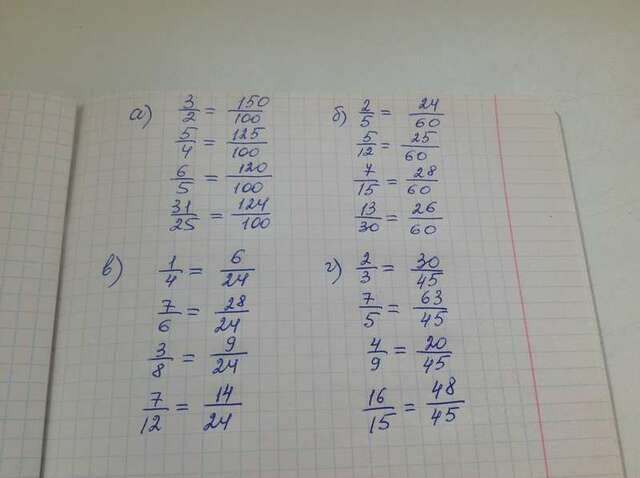 а) 3/2 = 150/100
5/4 = 125/100
6/5 = 120/100
31/25 = 124/100
б) 2/5 = 24/60
5/12 = 25/60
7/15 = 28/60
13/30 = 26/60
в) 1/4 = 6/24
7/6 = 28/24
3/8 = 9/24
7/12 = 14/24
г) 2/3 = 30/45
7/5 = 63/45
4/9 = 20/45
16/15 = 48/45